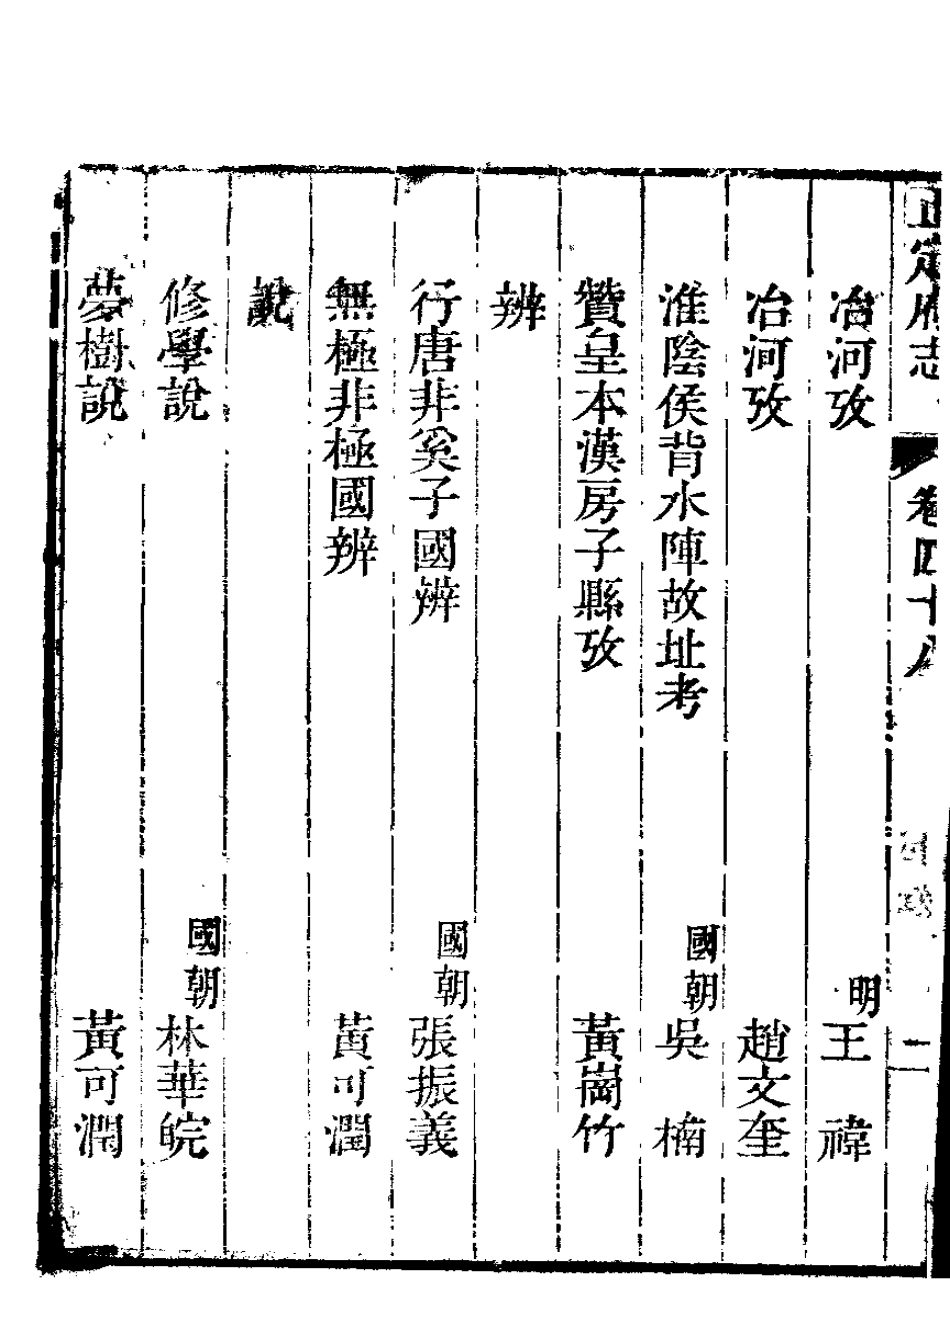 正定府志 卷四十八 目錄 二
冶河攷 明 王 禕
冶河攷 趙文奎
淮陰侯背水陣故址考 國朝 吳 楠
贊皇本漢房子縣攷 黃崗竹
辨
行唐非奚子國辨 國朝 張振義
無極非極國辨 黃可潤
說
修學說 國朝 林華皖
夢樹說 黃可潤